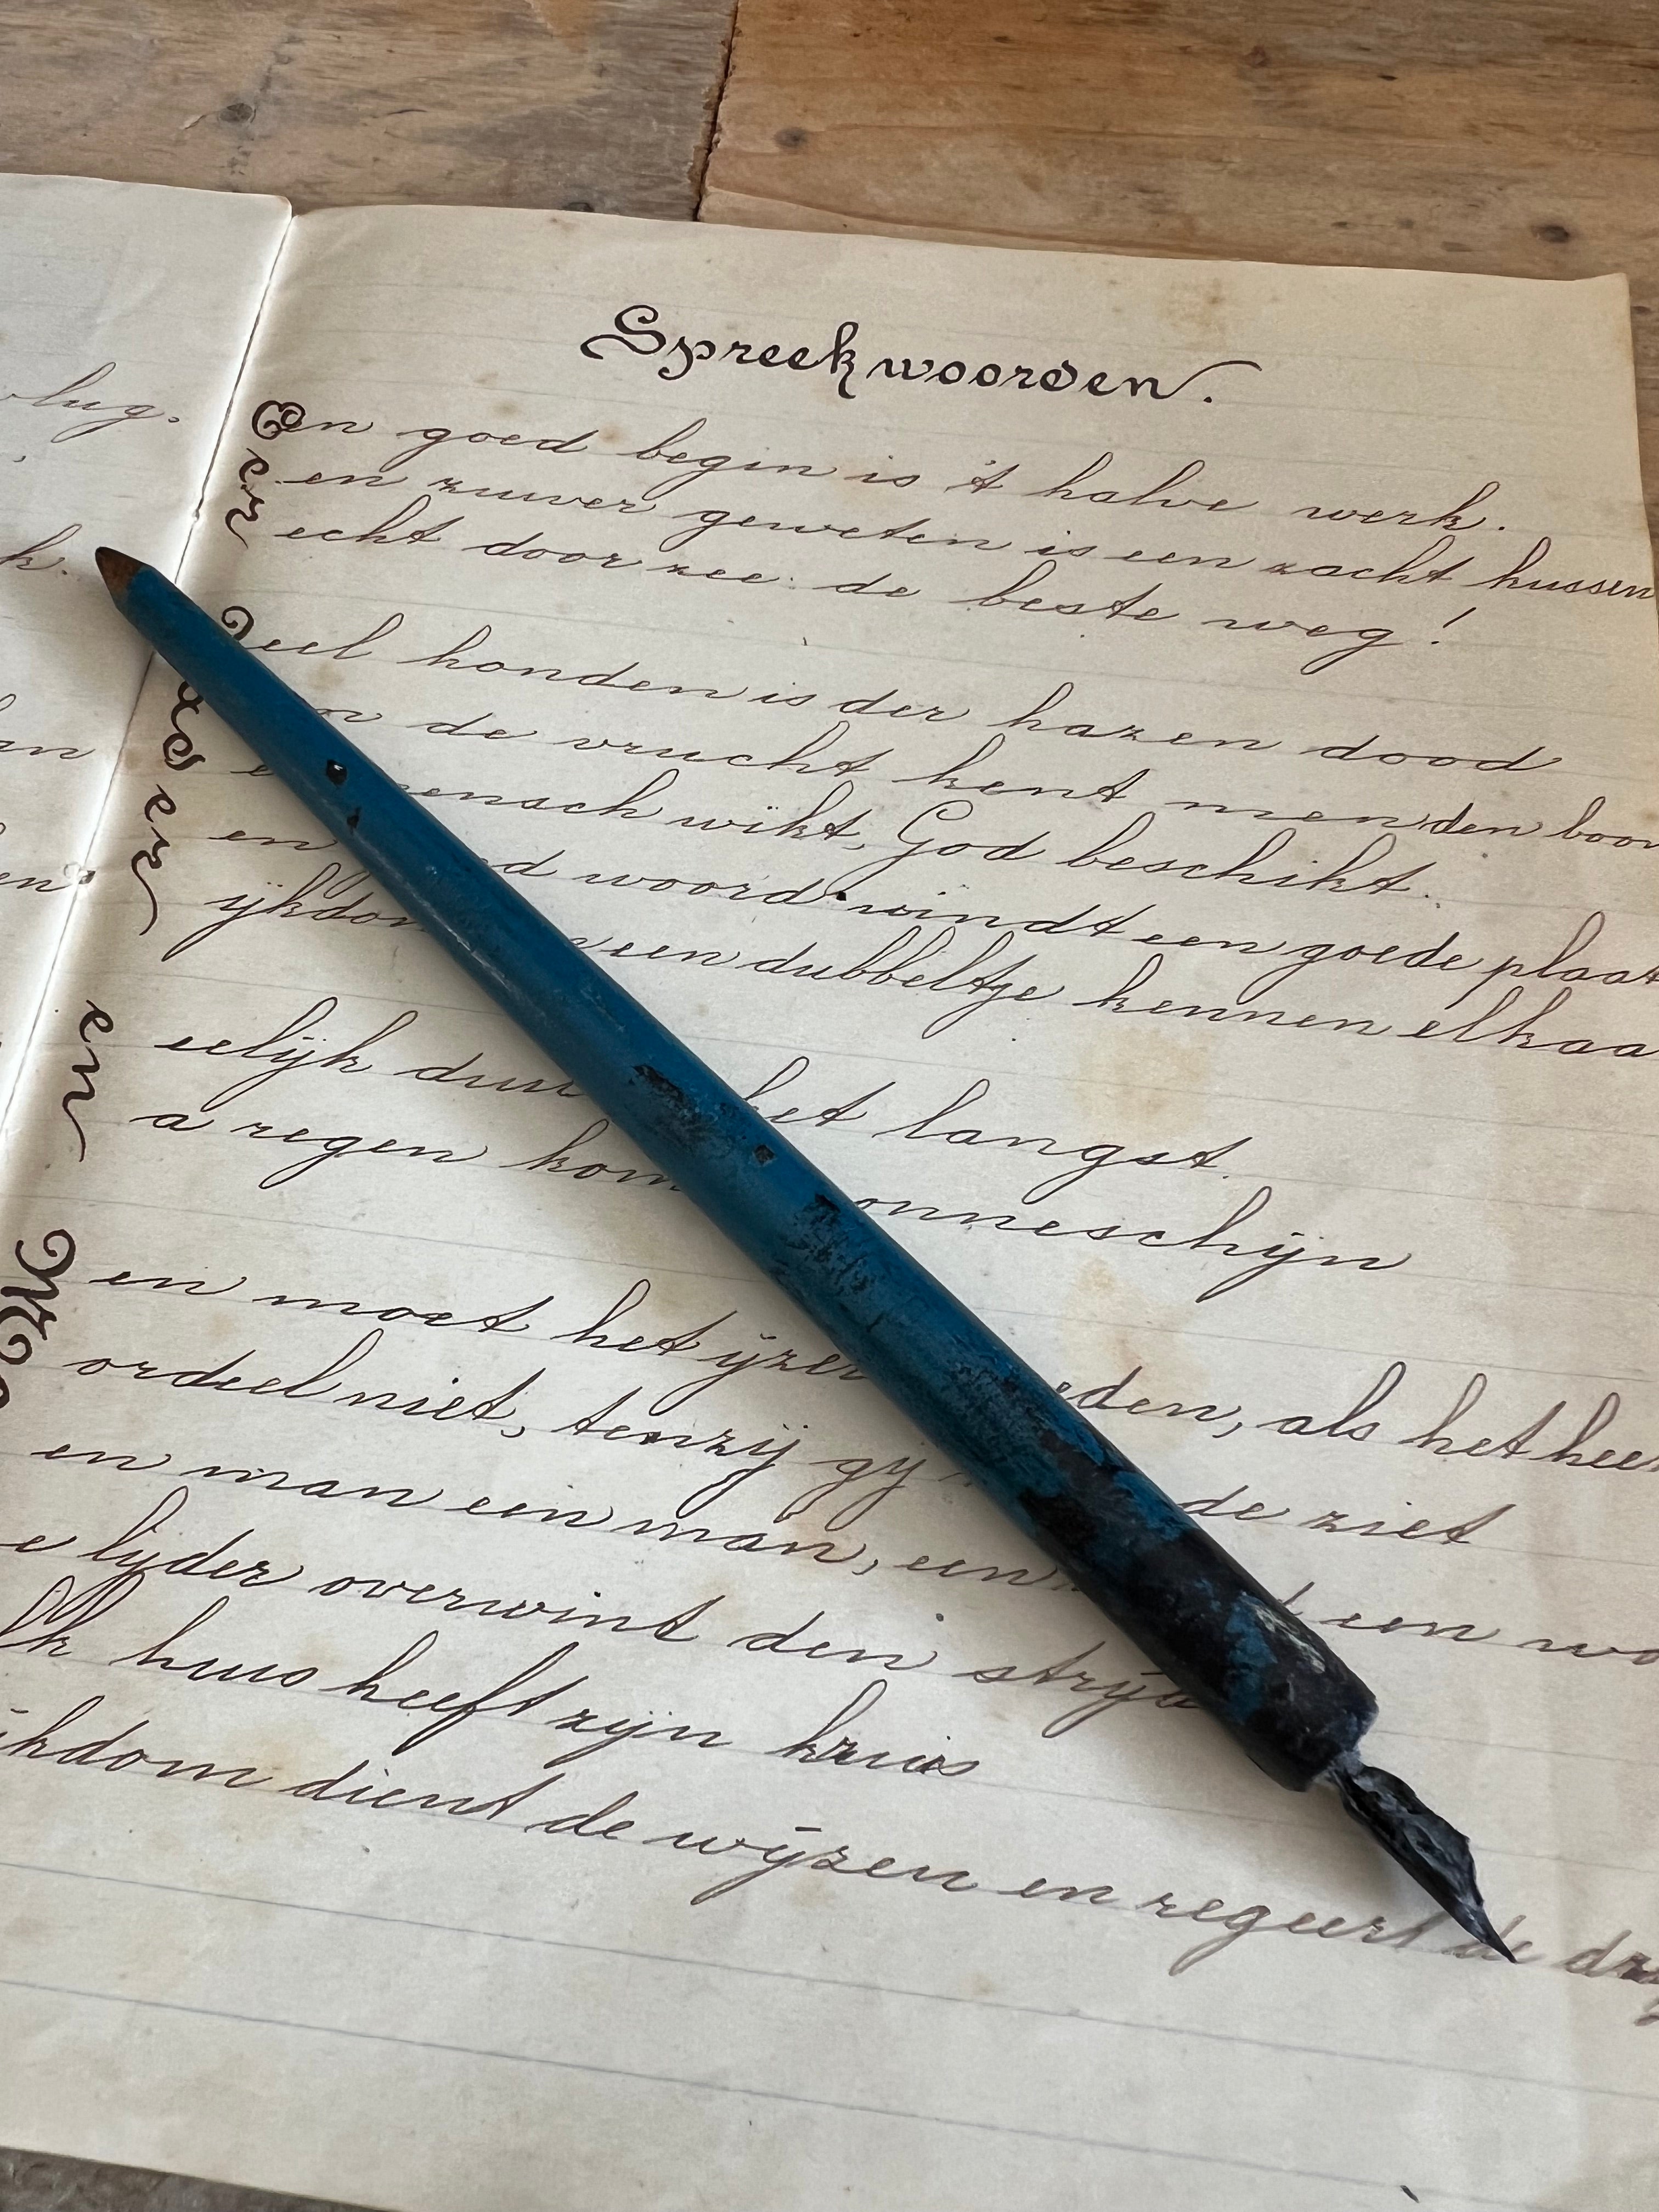 lug.
k.
an
en
Spreekwoorden.
Een goed begin is 't halve werk.
een zuiver geweten is een zacht kussen
recht door zee de beste weg!
Veel honden is der hazen dood
de vrucht kent men den boom
mensch wikt, God beschikt.
woord vindt een goede plaat
een dubbeltje kennen elkaa
eelijk duu het langst.
a regen kom onneschijn
en
en moet het ijzer eden, als het heet
ordeel niet, tenzij gy de ziet
en man een man, een een wo
e lijder overwint den strijd
lk huis heeft zijn kruis
ijkdom dient de wijzen en regeert de